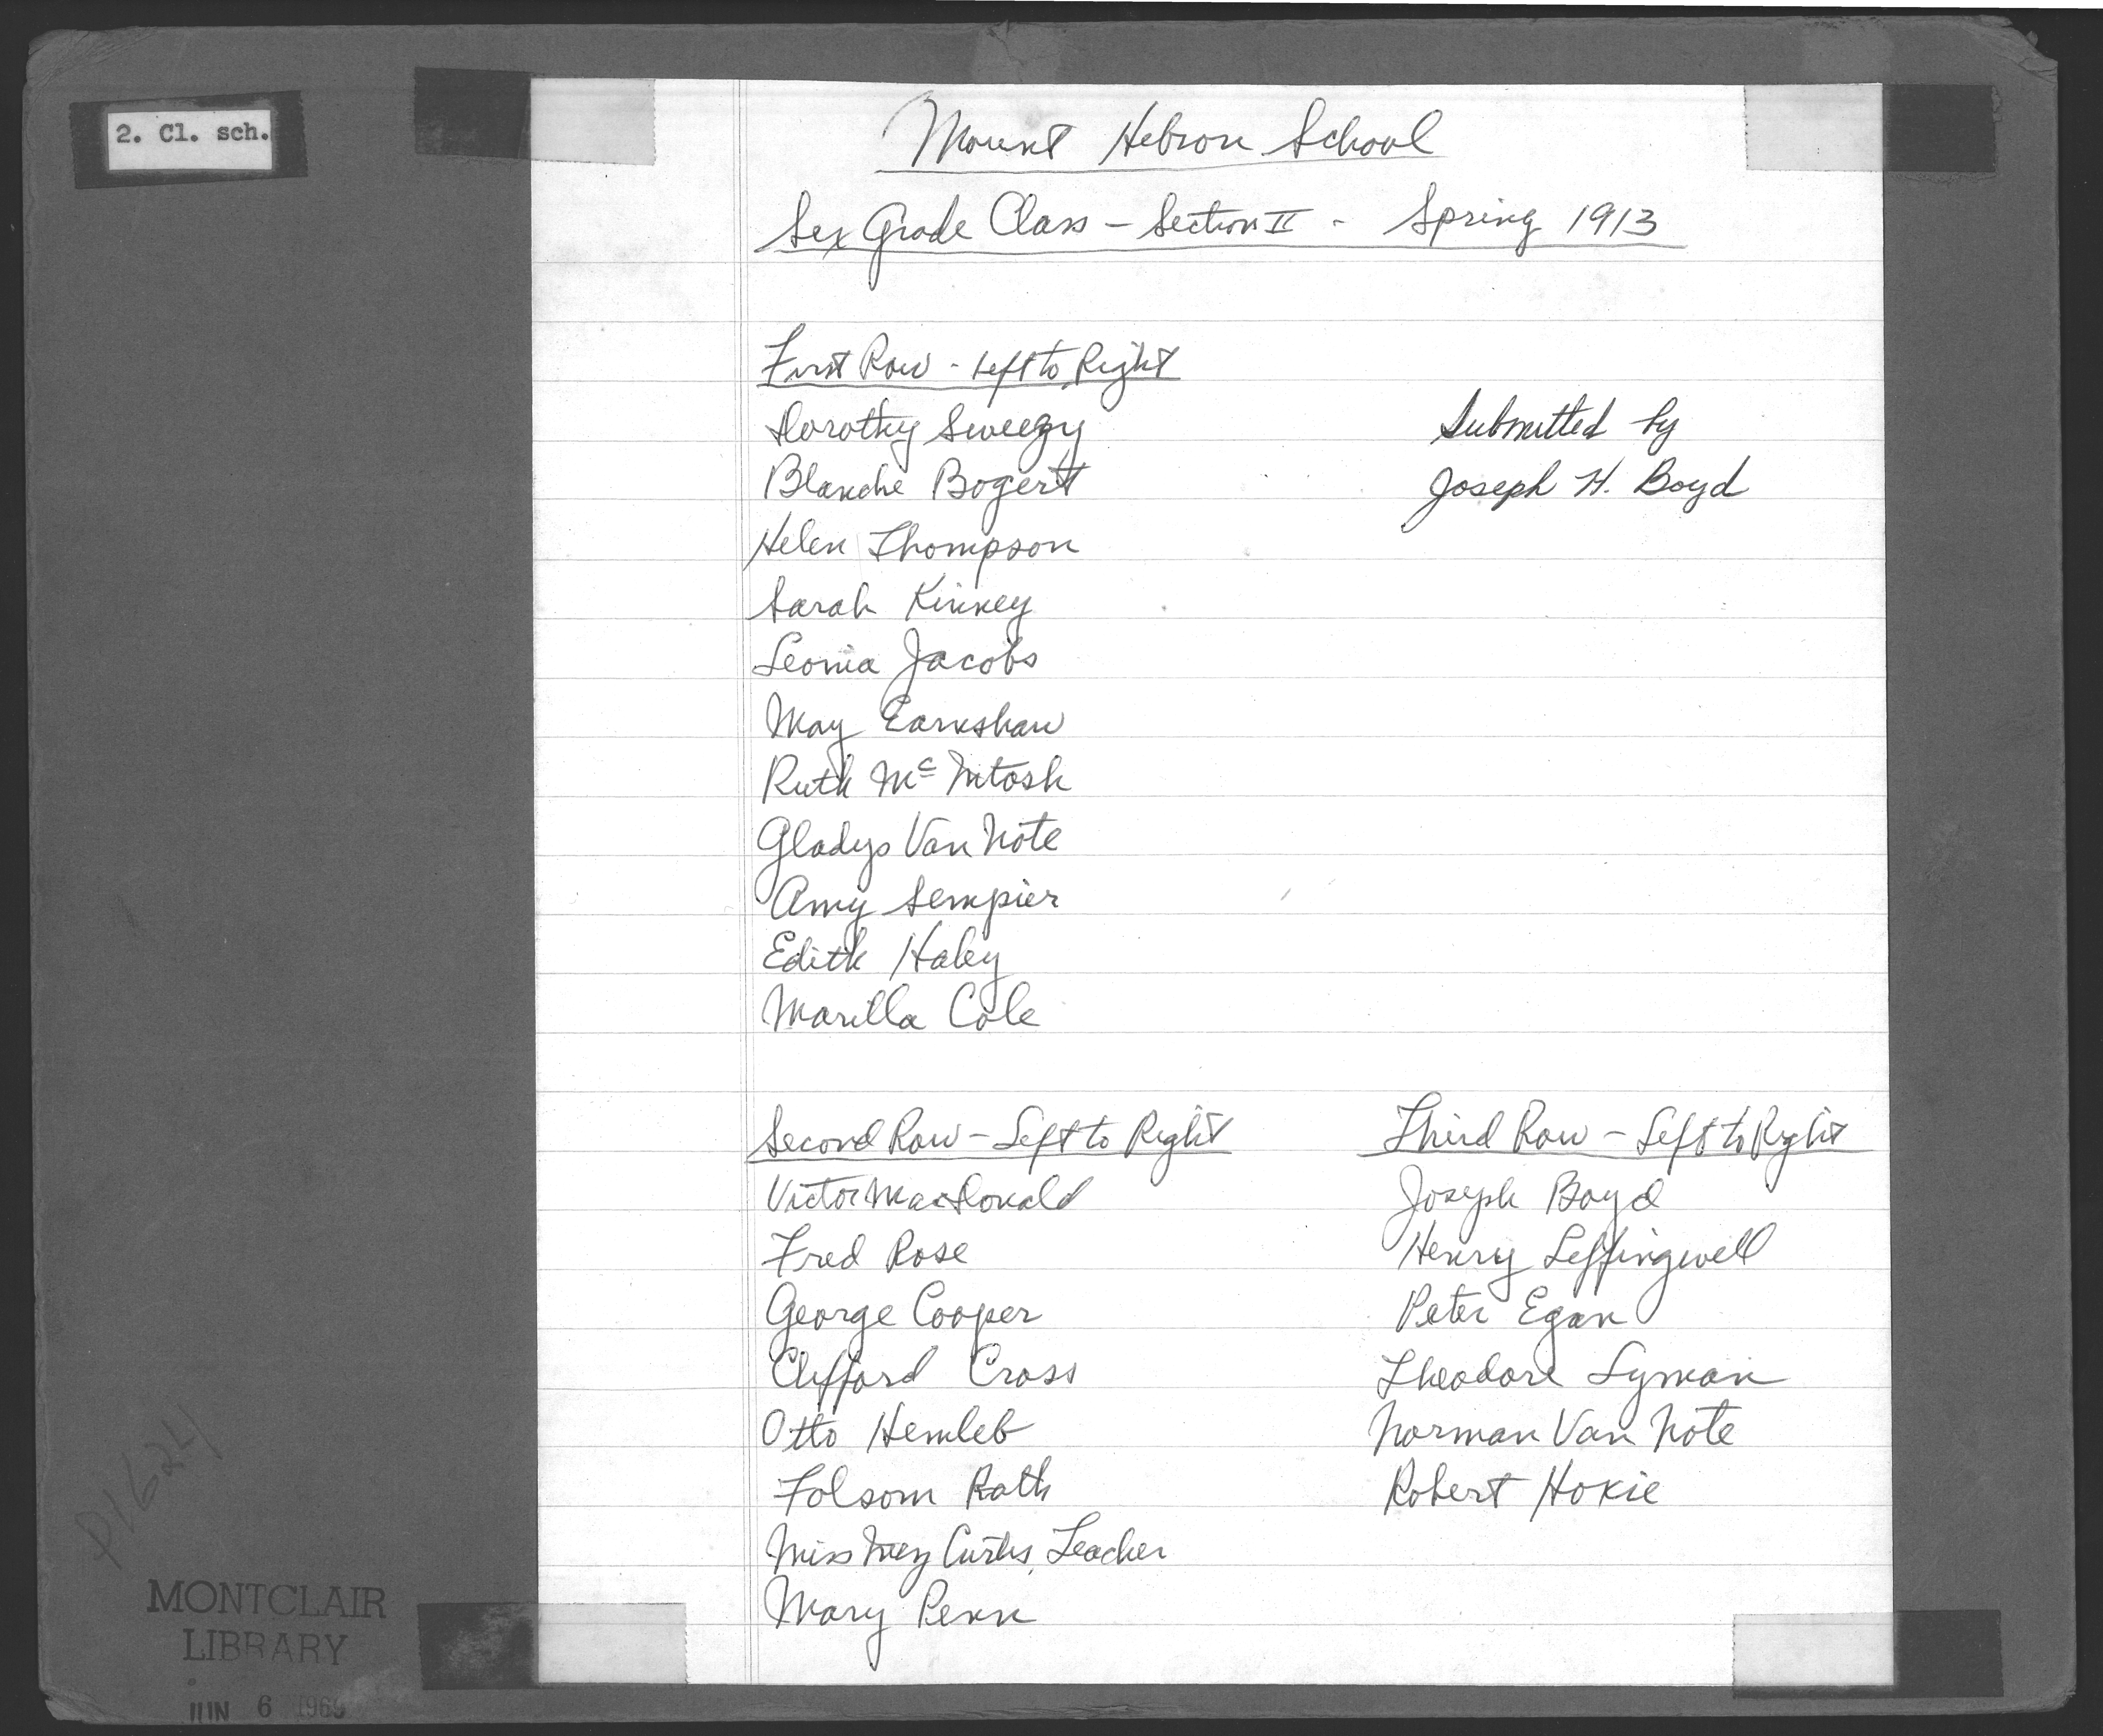 2. Cl. sch.
Mount Hebron School
Six Grade Class - Section II - Spring 1913
First Row - Left to Right
Dorothy Sweezy
Blanche Bogert
Helen Thompson
Sarah Kinney
Leonia Jacobs
May Earnshaw
Ruth Mc Intosh
Gladys Van Note
Amy Sempier
Edith Haley
Marilla Cole
Submitted by
Joseph H. Boyd
Second Row - Left to Right
Victor MacDonald
Fred Rose
George Cooper
Clifford Cross
Otto Hemleb
Folsom Rath
Miss May Curtis, Teacher
Mary Penn
Third Row - Left to Right
Joseph Boyd
Henry Leffingwell
Peter Egan
Theodore Lyman
Norman Van Note
Robert Hokie
P1624
MONTCLAIR
LIBRARY
JUN 6 196